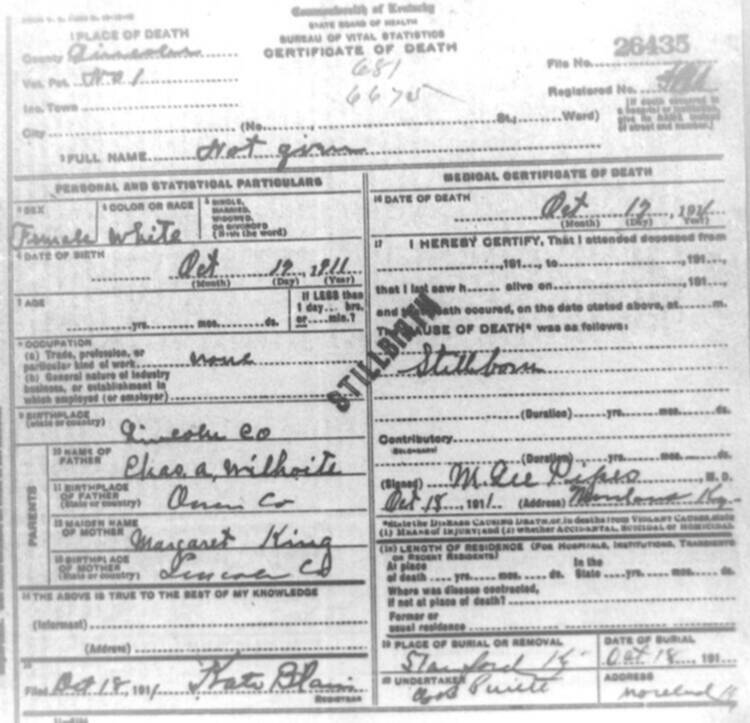 Commonwealth of Kentucky
STATE BOARD OF HEALTH
BUREAU OF VITAL STATISTICS
CERTIFICATE OF DEATH
1 PLACE OF DEATH
County Lincoln
Vot. Pct. No 1
Inc. Town
City (No. St.; Ward)
681
6675
File No. 26435
Registered No.
(If death occurred in a hospital or institution, give its NAME instead of street and number.)
2 FULL NAME Not given
PERSONAL AND STATISTICAL PARTICULARS
3 SEX Female
4 COLOR OR RACE White
5 SINGLE, MARRIED, WIDOWED, OR DIVORCED (Write the word)
6 DATE OF BIRTH Oct 12, 1911
(Month) (Day) (Year)
7 AGE
yrs. mos. ds.
If LESS than 1 day... hrs. or ... min.?
8 OCCUPATION
(a) Trade, profession, or particular kind of work none
(b) General nature of industry business, or establishment in which employed (or employer)
9 BIRTHPLACE
(State or country) Lincoln Co
PARENTS
10 NAME OF FATHER Chas. A. Wilhoite
11 BIRTHPLACE OF FATHER
(State or country) Owen Co
12 MAIDEN NAME OF MOTHER Margaret King
13 BIRTHPLACE OF MOTHER
(State or country) Lincoln Co
14 THE ABOVE IS TRUE TO THE BEST OF MY KNOWLEDGE
(Informant)
(Address)
15
Filed Oct 18, 191 Kate Blain
REGISTRAR
STILLBIRTH
MEDICAL CERTIFICATE OF DEATH
16 DATE OF DEATH Oct 12, 1911
(Month) (Day) (Year)
17 I HEREBY CERTIFY, That I attended deceased from
, 191 , to , 191 ,
that I last saw h alive on , 191 ,
and that death occured, on the date stated above, at m.
The CAUSE OF DEATH* was as follows:
Stillborn
(Duration) yrs. mos. ds.
Contributory
(SECONDARY)
(Duration) yrs. mos. ds.
(Signed) M. Lee Pipes M. D.
Oct 18, 191 (Address) Moreland Ky
*State the DISEASE CAUSING DEATH, or, in deaths from VIOLENT CAUSES, state
(1) MEANS OF INJURY; and (2) whether ACCIDENTAL, SUICIDAL or HOMICIDAL
(18) LENGTH OF RESIDENCE (FOR HOSPITALS, INSTITUTIONS, TRANSIENTS OR RECENT RESIDENTS)
At place of death yrs. mos. ds. In the State yrs. mos. ds.
Where was disease contracted, if not at place of death?
Former or usual residence
19 PLACE OF BURIAL OR REMOVAL Stanford Ky
DATE OF BURIAL Oct 18, 191
20 UNDERTAKER
ADDRESS Moreland Ky